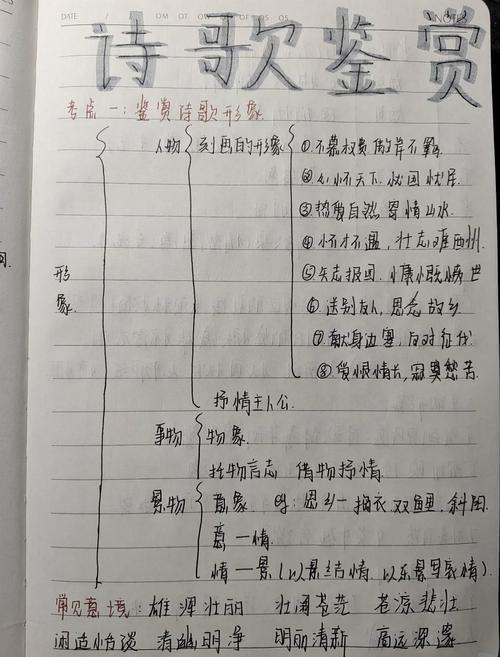 DATE
NOTES
诗歌鉴赏
考点一：鉴赏诗歌形象
形象
人物
刻画的形象
①不慕权贵 傲岸不羁
②心怀天下. 忧国忧民
③热爱自然 寄情山水.
④怀才不遇，壮志难酬
⑤矢志报国. 慷慨愤世
⑥送别友人，思念故乡
⑦献身边塞，反对征伐
⑧爱恨情长，寂寞愁苦.
抒情主人公.
事物
物象
托物言志 借物抒情
景物
意象 思乡一捣衣 双鲤.
意一情.
情一景（以景结情. 以乐景写哀情）
常见意境：雄浑壮丽 壮阔苍茫 苍凉悲壮
闲适恬淡 清幽明净 明丽清新 高远深邃